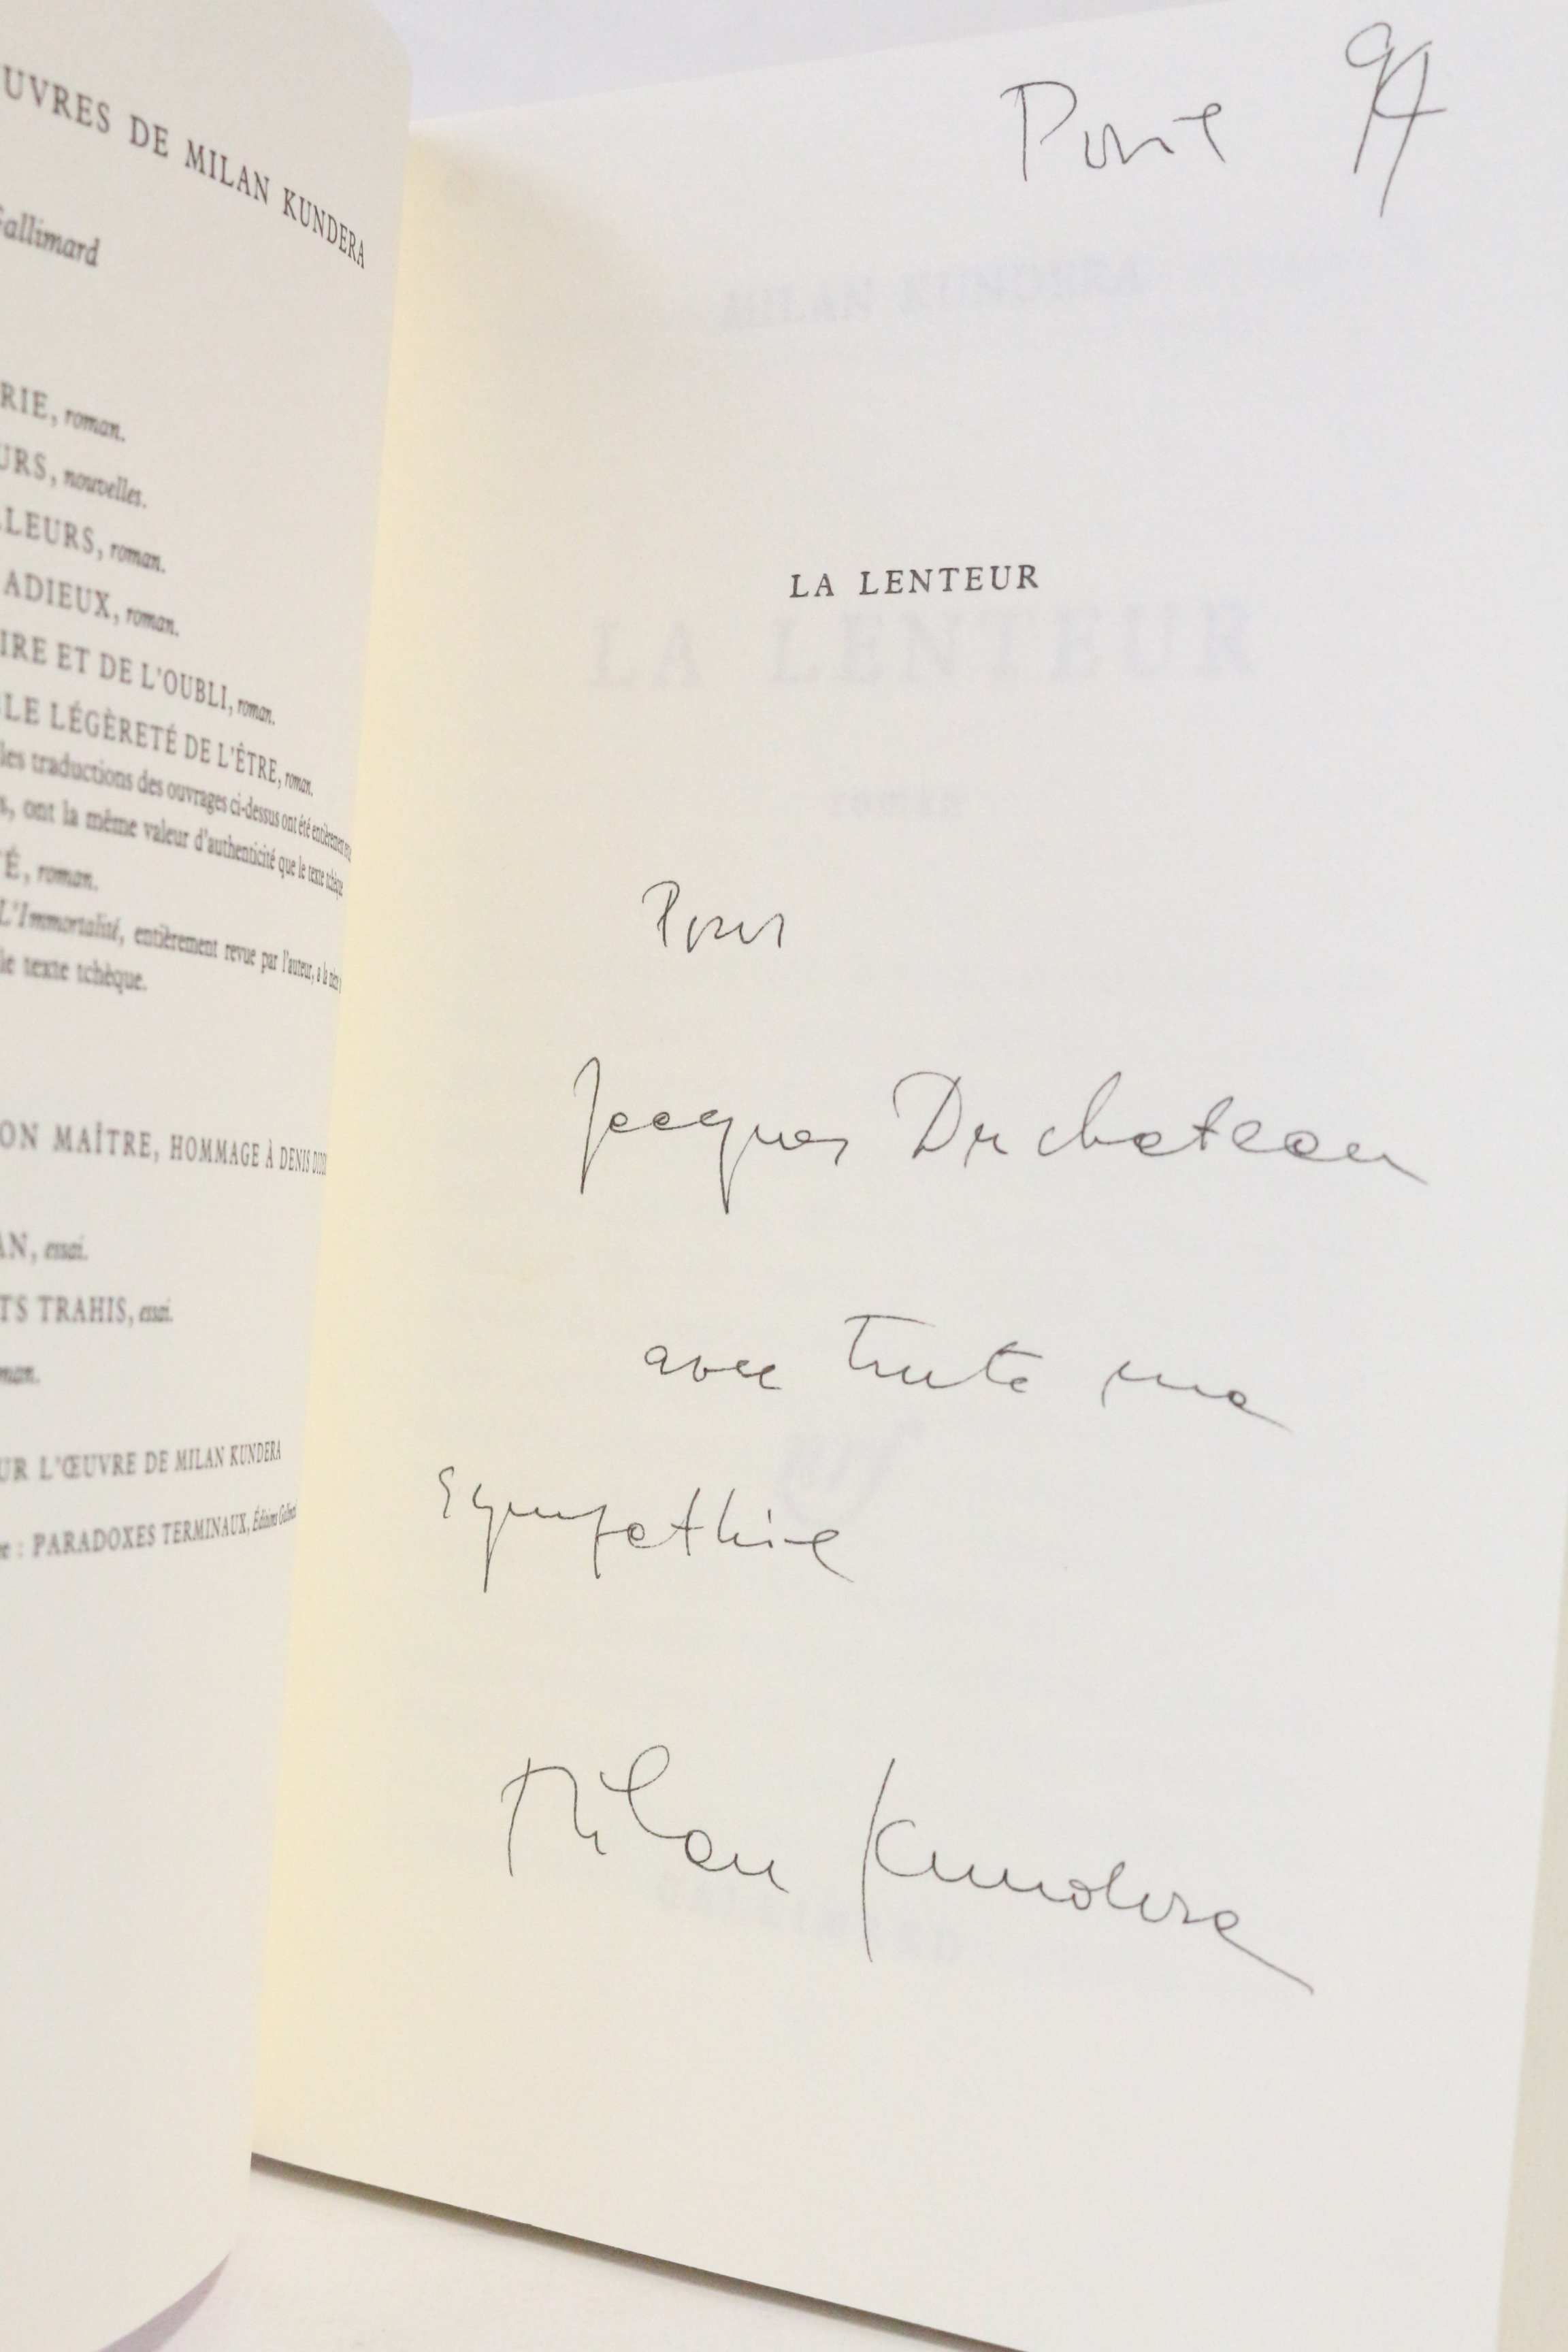 UVRES DE MILAN KUNDERA
Gallimard
RIE, roman.
URS, nouvelles.
LLEURS, roman.
ADIEUX, roman.
IRE ET DE L'OUBLI, roman.
LE LÉGÈRETÉ DE L'ÊTRE, roman.
les traductions des ouvrages ci-dessus ont été entièrement
s, ont la même valeur d'authenticité que le texte tchèque
É, roman.
L'Immortalité, entièrement revue par l'auteur, a la
le texte tchèque.
ON MAÎTRE, HOMMAGE À DENIS
AN, essai.
TS TRAHIS, essai.
man.
UR L'ŒUVRE DE MILAN KUNDERA
: PARADOXES TERMINAUX, Éditions
97
MILAN KUNDERA
LA LENTEUR
LA LENTEUR
roman
Pour
Jacques Duchateau
avec toute ma
nrf
sympathie
Milan Kundera
GALLIMARD